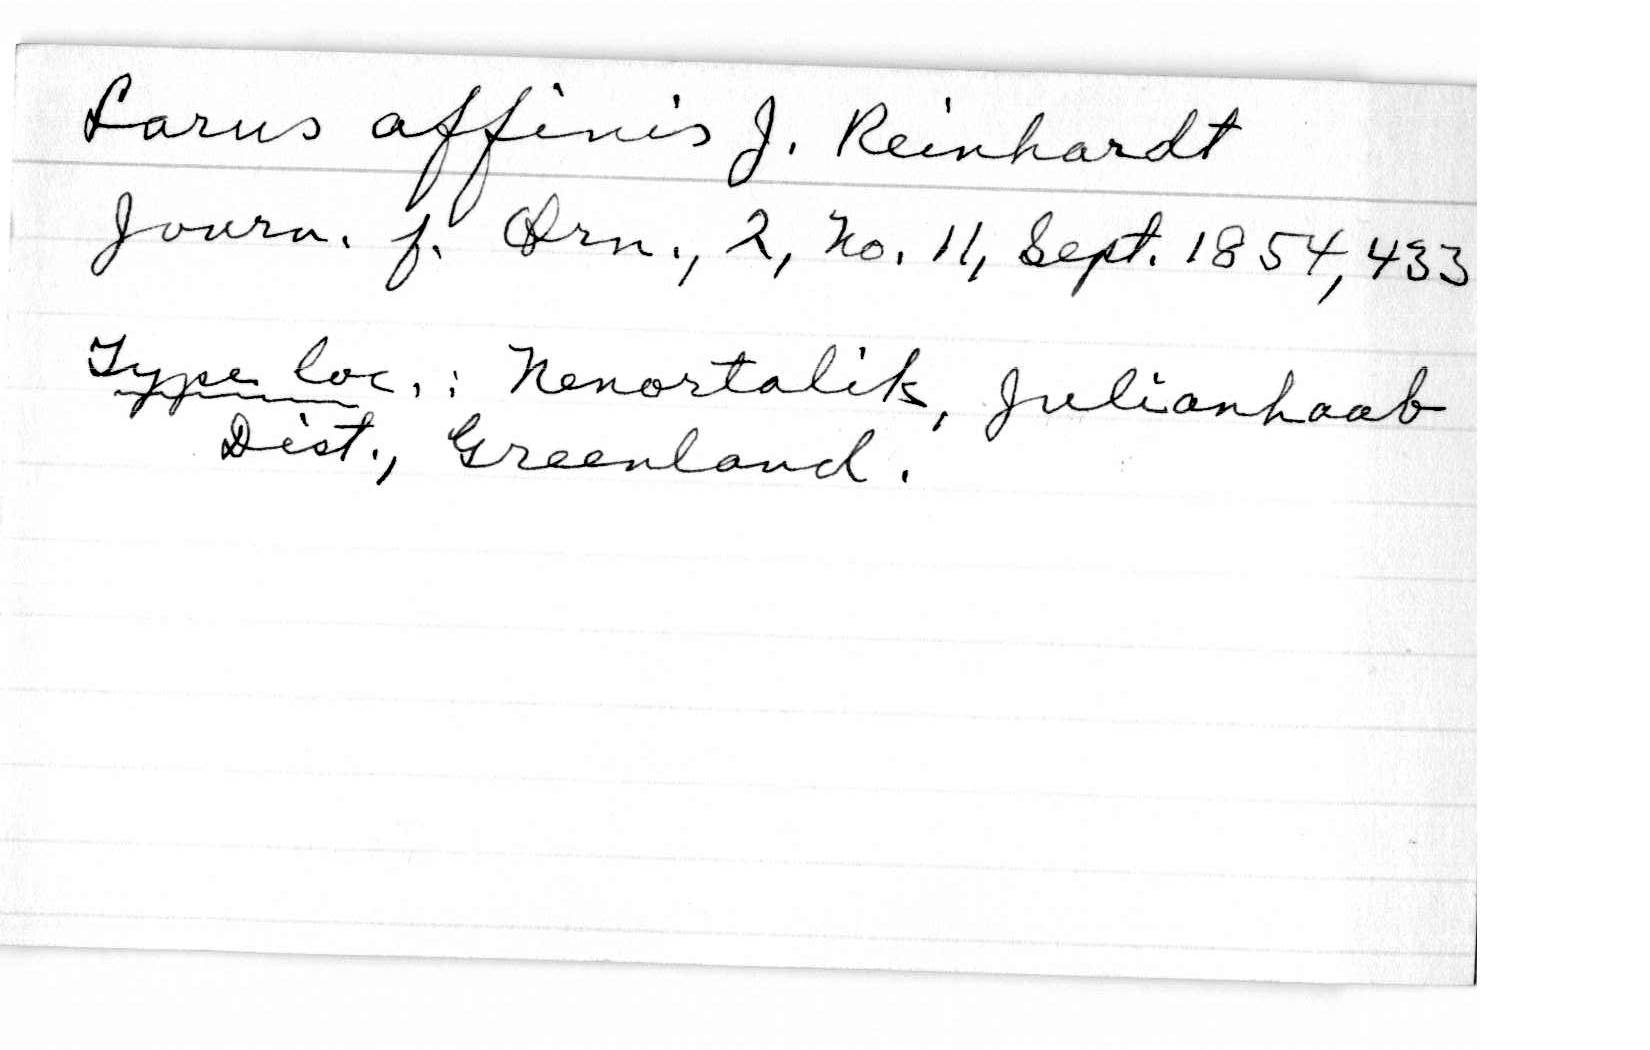 Larus affinis J. Reinhardt
Journ. f. Orn., 2, No. 11, Sept. 1854, 433
Type loc.: Nenortalik, Julianhaab
Dist., Greenland.